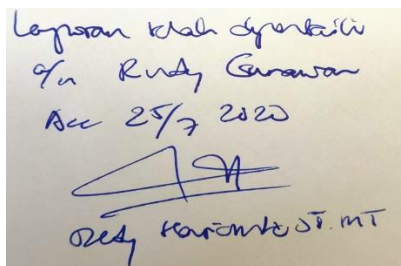 Laporan telah diperbaiki
a/n Rudy Gunawan
Acc 25/7 2020
ST. MT